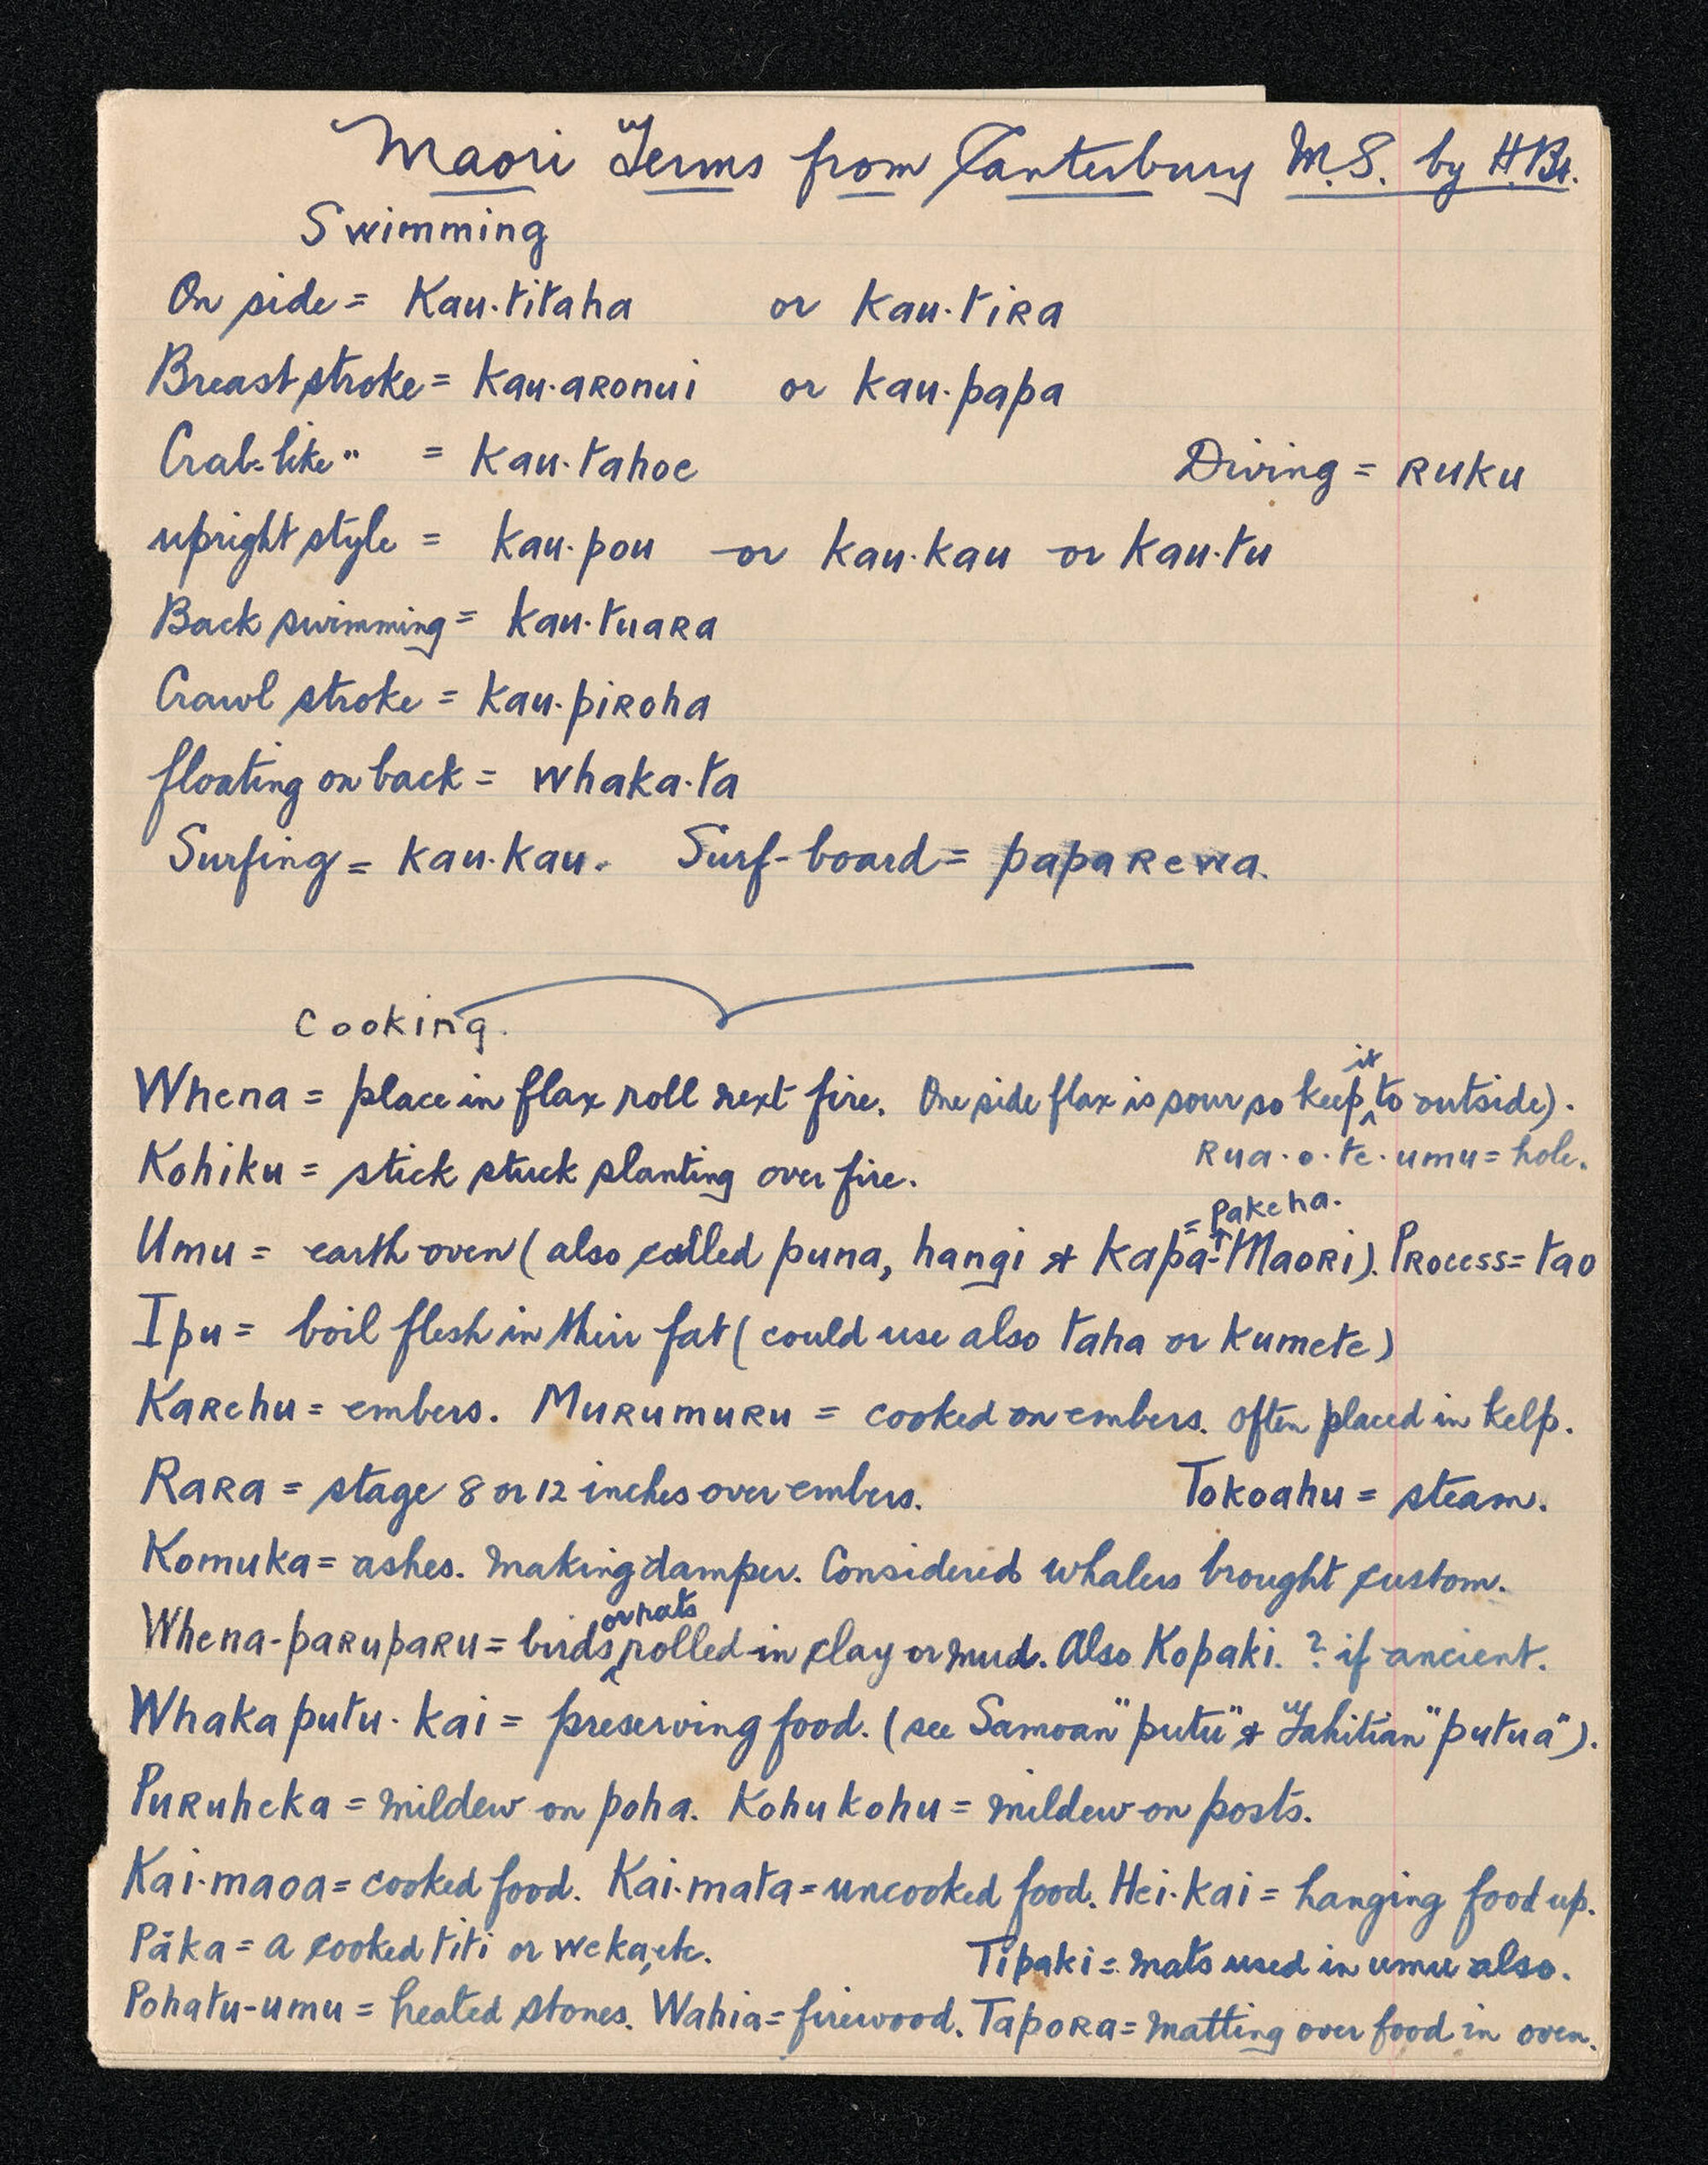 Maori Terms from Canterbury M.S. by H.Be.
Swimming
On side = Kau·titaha or Kau·tira
Breast stroke = Kau·aronui or kau·papa
Crab-like " = Kau·tahoe Diving = Ruku
upright style = kau·pou or kau·kau or kau·tu
Back swimming = kau·tuara
Crawl stroke = kau·piroha
floating on back = whaka·ta
Surfing = kau·kau. Surf-board = papa rewa.
Cooking.
Whena = place in flax roll next fire. One side flax is sour so keep it to outside).
Rua·o·te·umu = hole.
Kohiku = stick stuck slanting over fire.
= Pakeha.
Umu = earth oven (also called puna, hangi & Kapa-Maori). Process = tao
Ipu = boil flesh in their fat (could use also taha or kumete)
Karehu = embers. Murumuru = cooked on embers. Often placed in kelp.
Rara = stage 8 or 12 inches over embers. Tokoahu = steam.
Komuka = ashes. Making damper. Considered whalers brought custom.
Whena-paruparu = birds or rats rolled in clay or mud. Also Kopaki. ? if ancient.
Whaka putu·kai = preserving food. (see Samoan "putu" & Tahitian "putua").
Puruheka = mildew on poha. Kohukohu = mildew on posts.
Kai·maoa = cooked food. Kai·mata = uncooked food. Hei·kai = hanging food up.
Pāka = a cooked titi or weka, etc. Tipaki = mats used in umu also.
Pohatu-umu = heated stones. Wahia = firewood. Tapora = matting over food in oven.